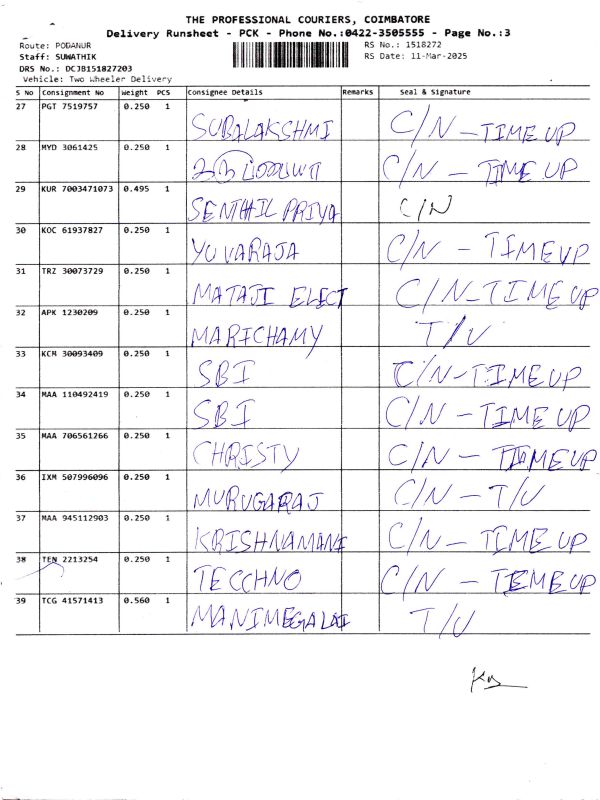 THE PROFESSIONAL COURIERS, COIMBATORE
Delivery Runsheet - PCK - Phone No.:0422-3505555 - Page No.:3
Route: PODANUR RS No.: 1518272
Staff: SUWATHIK RS Date: 11-Mar-2025
DRS No.: DCJB151827203
Vehicle: Two Wheeler Delivery
S No Consignment No Weight PCS Consignee Details Remarks Seal & Signature
27 PGT 7519757 0.250 1 SUBALAKSHMI C/N - TIME UP
28 MYD 3061425 0.250 1 C/N - TIME UP
29 KUR 7003471073 0.495 1 SENTHIL PRIYA C/N
30 KOC 61937827 0.250 1 YUVARAJA C/N - TIMEUP
31 TRZ 30073729 0.250 1 MATAJI ELECT C/N-TIME UP
32 APK 1230209 0.250 1 MARICHAMY T/U
33 KCM 30093409 0.250 1 SBI C/N-TIME UP
34 MAA 110492419 0.250 1 SBI C/N - TIME UP
35 MAA 706561266 0.250 1 CHRISTY C/N - TIMEUP
36 IXM 507996096 0.250 1 MURUGARAJ C/N - T/U
37 MAA 945112903 0.250 1 KRISHNAMANI C/N - TIME UP
38 TEN 2213254 0.250 1 TECCHNO C/N - TEMEUP
39 TCG 41571413 0.560 1 MANIMEGALAI T/U